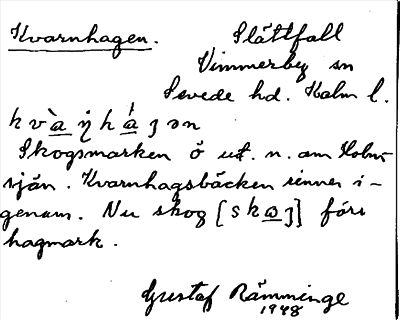 Kvarnhagen. Slättfall
Vimmerby sn
Sevede hd. Kalm l.
kvàŋ̈há̱ʒən
Skogsmarken ö ut. n. om Holm-
sjön. Kvarnhagsbäcken rinner i-
genom. Nu skog [skɷʒ] förr
hagmark.
Gustaf Rämminge
1948